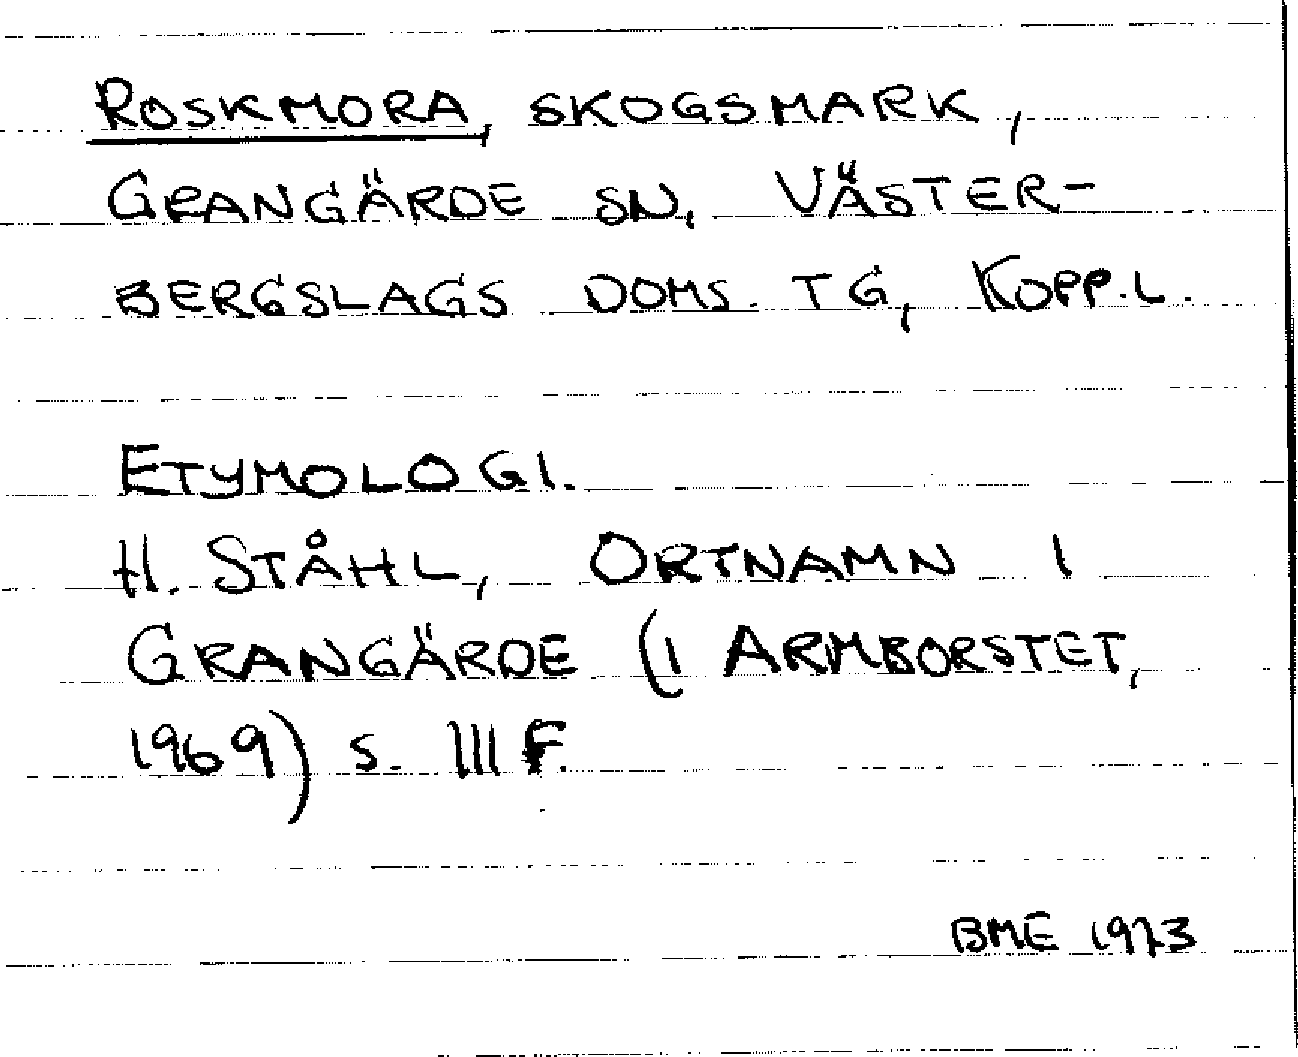 ROSKMORA, SKOGSMARK,
GRANGÄRDE SN, VÄSTER-
BERGSLAGS DOMS. TG, KOPP.L.
ETYMOLOGI.
H. STÅHL, ORTNAMN I
GRANGÄRDE (I ARMBORSTET,
1969) S. 111 F.
BME 1973